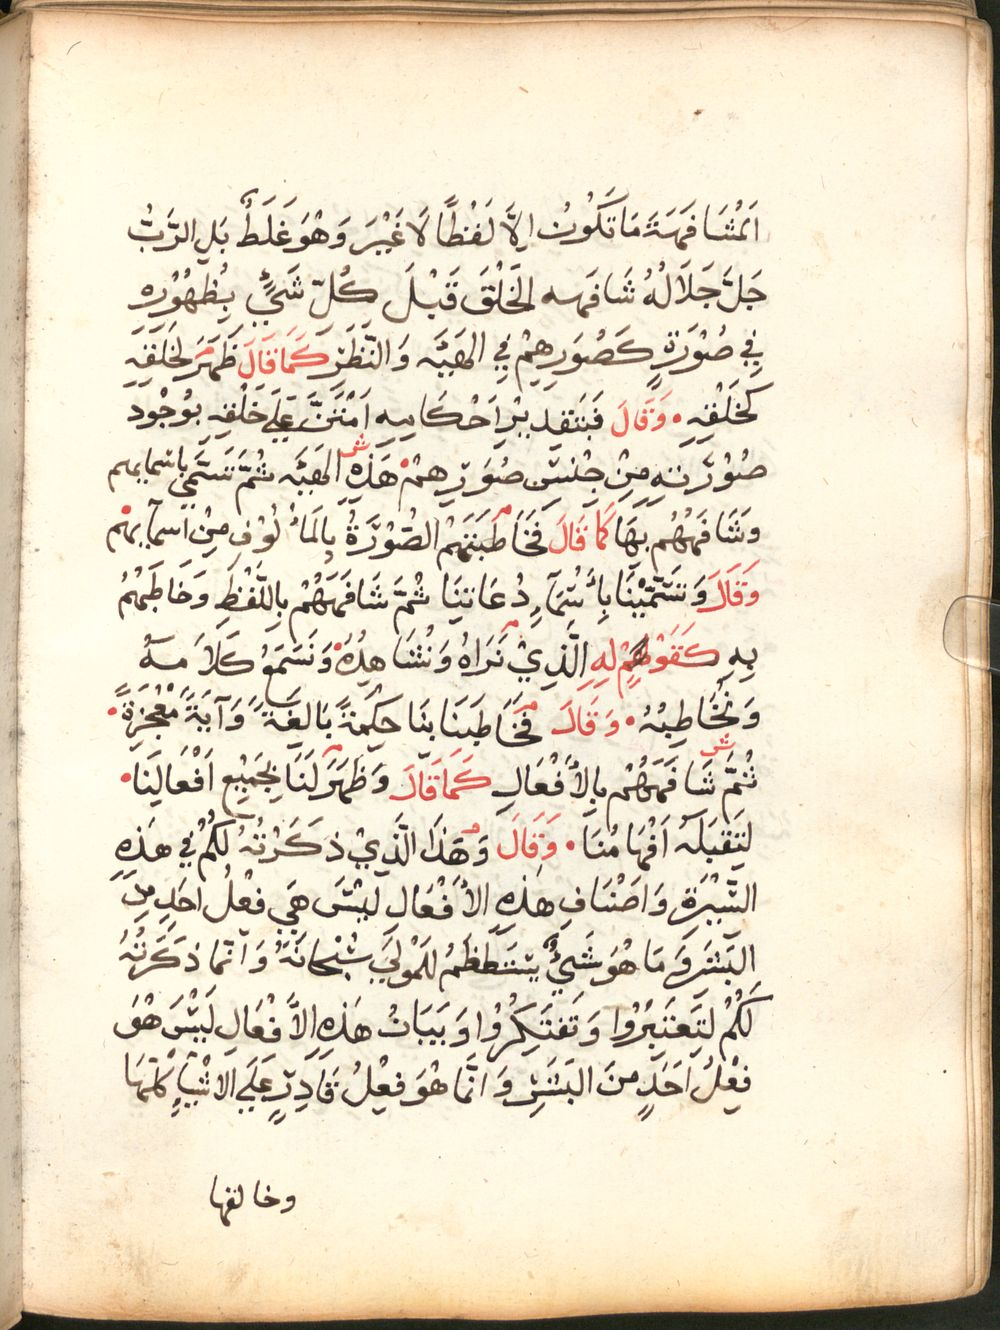 اَلمُشَافَهَةَ مَا تَكُونُ اِلاَّ لَفْظًا لَا غَيْرَ وَهْوَ غَلَطٌ بَلِ الرَّبُّ
جَلَّ جَلَالُهُ شَافَهه الخَلْقَ قَبْلَ كُلّ شَيْءٍ بِظُهُوْرِه
فِي صُوْرَةٍ كَصُوَرِهِمْ فِي الهَيْئَه وَالنَّظَرْ كَمَا قَالَ ظَهَرَ لِخَلْقِهِ
كَخَلْقِهِ • وَقَالَ فَبَتَقدِيْرِ اَحْكَامِهِ اَمْتَنَّ عَلَى خَلْقِهِ بوُجُود
صُوْرَتهِ مِنْ جْنسْ صُوَرِهمْ هَذِهِ الهَيْئَه ثُمَّ تَسَمَّي باسمايهم
وَشَافَهُهُم بِهَا كَمَا قَالَ فَخَاطَبَتَهُمْ الصُّوْرَةُ بِالمَأْلُوْف مِنْ اَسمآيهم
وَقَالَ وَتَسَمَّيْنَا بِأَسْمَآءِ دُعَاتِنَا ثُمَّ شَافَهَهُمْ بِاللَّفْظِ وَخَاطَبَهُمْ
بِهِ كَقَوْلِهِمْ لِهِ الَّذِيْ نَرَاهُ وَنُشَاهِدُهُ وَنَسَمَعُ كَلَامَهُ
وَنُخَاطِبُهُ • وَقَالَ فَخَاطَبَنَا بنَا حِكْمَةً بَالِغَةً وَآيَةً مُعْجِزَةً •
ثُمَّ شَافَهَهُمْ بِالأَفْعَالِ كَمَا قَالَ وَظَهَرَ لَنَا بِجَمِيْع اَفْعَالِنَا •
لِتَقبَلَهُ اَفْهَامُنَا • وَقَالَ وَهَذَا الَّذِيْ ذكَرْتُهُ لَكُمْ في هَذِهِ
السِّيْرَةِ وَاَصْنَافِ هَذِهِ الأَفْعَالِ لَيْسَ هِيَ فعْلُ احَدٍ مِنَ
البَشَر وَمَا هُوَ شَيْءٌ يَسْتَعْظَمُ لِلمَوْلَي سُبْحَانَهُ وَاَنَّمَا ذَكَرْتُهُ
لَكُمْ لتَعْتَبِرُوا وَتَفتَكِرُوا وَبَيَانُ هَذِهِ الأَفْعَالِ لَيْسَ هُوَ
فِعْلُ اَحَدٍ مِنَ البَشَرِ وَانَّمَا هُوَ فِعْلُ قَادِرٍ عَلَى الاشْيَآءِ كُلِّهَا
وخالقها